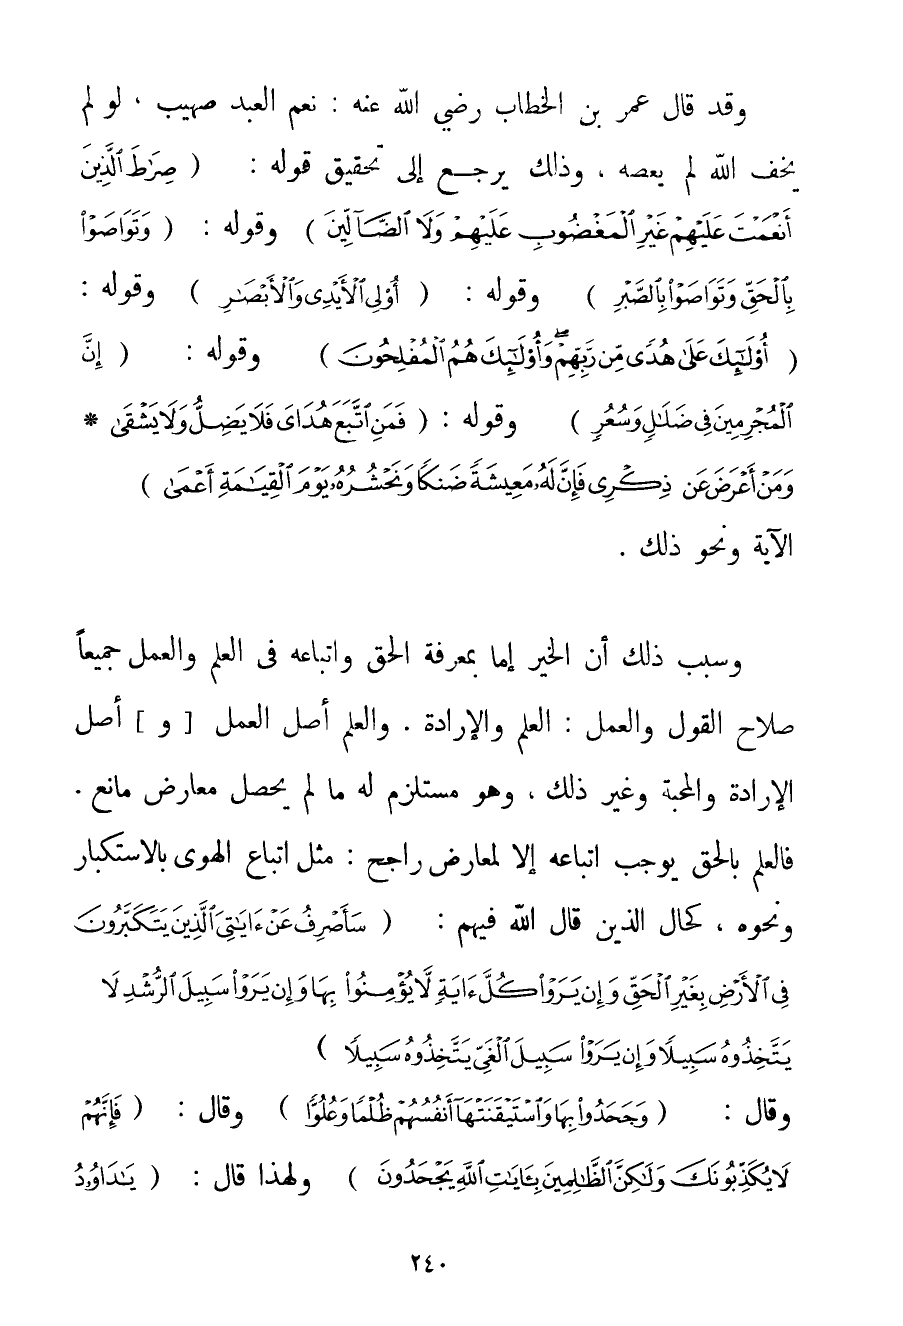 وقد قال عمر بن الخطاب رضي الله عنه : نعم العبد صهيب ، لو لم
يخف الله لم يعصه ، وذلك يرجع إلى تحقيق قوله : ( صِرَٰطَ ٱلَّذِينَ
أَنْعَمْتَ عَلَيْهِمْ غَيْرِ ٱلْمَغْضُوبِ عَلَيْهِمْ وَلَا ٱلضَّآلِّينَ ) وقوله : ( وَتَوَاصَوْا۟
بِٱلْحَقِّ وَتَوَاصَوْا۟ بِٱلصَّبْرِ ) وقوله : ( أُو۟لِى ٱلْأَيْدِى وَٱلْأَبْصَٰرِ ) وقوله :
( أُو۟لَٰٓئِكَ عَلَىٰ هُدًى مِّن رَّبِّهِمْ ۖ وَأُو۟لَٰٓئِكَ هُمُ ٱلْمُفْلِحُونَ ) وقوله : ( إِنَّ
ٱلْمُجْرِمِينَ فِى ضَلَٰلٍ وَسُعُرٍ ) وقوله : ( فَمَنِ ٱتَّبَعَ هُدَاىَ فَلَا يَضِلُّ وَلَا يَشْقَىٰ *
وَمَنْ أَعْرَضَ عَن ذِكْرِى فَإِنَّ لَهُۥ مَعِيشَةً ضَنكًا وَنَحْشُرُهُۥ يَوْمَ ٱلْقِيَٰمَةِ أَعْمَىٰ )
الآية ونحو ذلك .
وسبب ذلك أن الخير إما بمعرفة الحق واتباعه فى العلم والعمل جميعاً
صلاح القول والعمل : العلم والإرادة . والعلم أصل العمل [ و ] أصل
الإرادة والمحبة وغير ذلك ، وهو مستلزم له ما لم يحصل معارض مانع .
فالعلم بالحق يوجب اتباعه إلا لمعارض راجح : مثل اتباع الهوى بالاستكبار
ونحوه ، كحال الذين قال الله فيهم : ( سَأَصْرِفُ عَنْ ءَايَٰتِىَ ٱلَّذِينَ يَتَكَبَّرُونَ
فِى ٱلْأَرْضِ بِغَيْرِ ٱلْحَقِّ وَإِن يَرَوْا۟ كُلَّ ءَايَةٍ لَّا يُؤْمِنُوا۟ بِهَا وَإِن يَرَوْا۟ سَبِيلَ ٱلرُّشْدِ لَا
يَتَّخِذُوهُ سَبِيلًا وَإِن يَرَوْا۟ سَبِيلَ ٱلْغَىِّ يَتَّخِذُوهُ سَبِيلًا )
وقال : ( وَجَحَدُوا۟ بِهَا وَٱسْتَيْقَنَتْهَآ أَنفُسُهُمْ ظُلْمًا وَعُلُوًّا ) وقال : ( فَإِنَّهُمْ
لَا يُكَذِّبُونَكَ وَلَٰكِنَّ ٱلظَّٰلِمِينَ بِـَٔايَٰتِ ٱللَّهِ يَجْحَدُونَ ) ولهذا قال : ( يَٰدَاوُۥدُ
٢٤٠